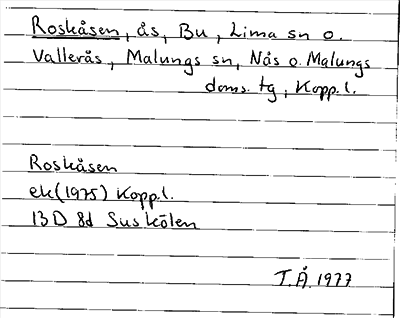 Roskåsen, ås, Bu, Lima sn o.
Vallerås, Malungs sn, Nås o. Malungs
doms. tg, Kopp. l.
Roskåsen
ek (1975) Kopp. l.
13 D 8d Suskölen
T. Å. 1977